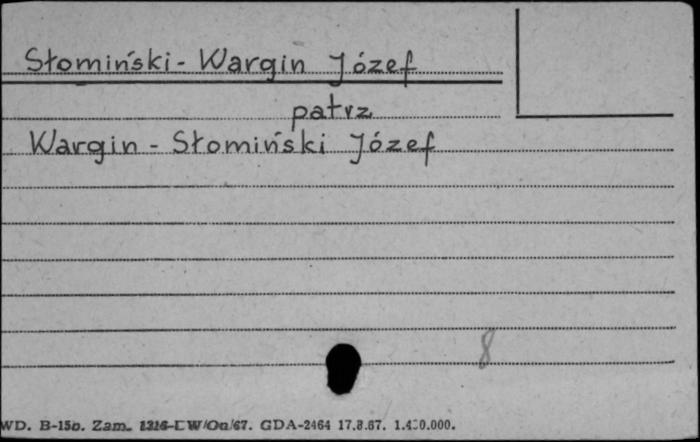 Słomiński-Wargin Józef
patrz
Wargin - Słomiński Józef
8
WD. B-15b. Zam. W/Oa/67. GDA-2464 17.8.67.